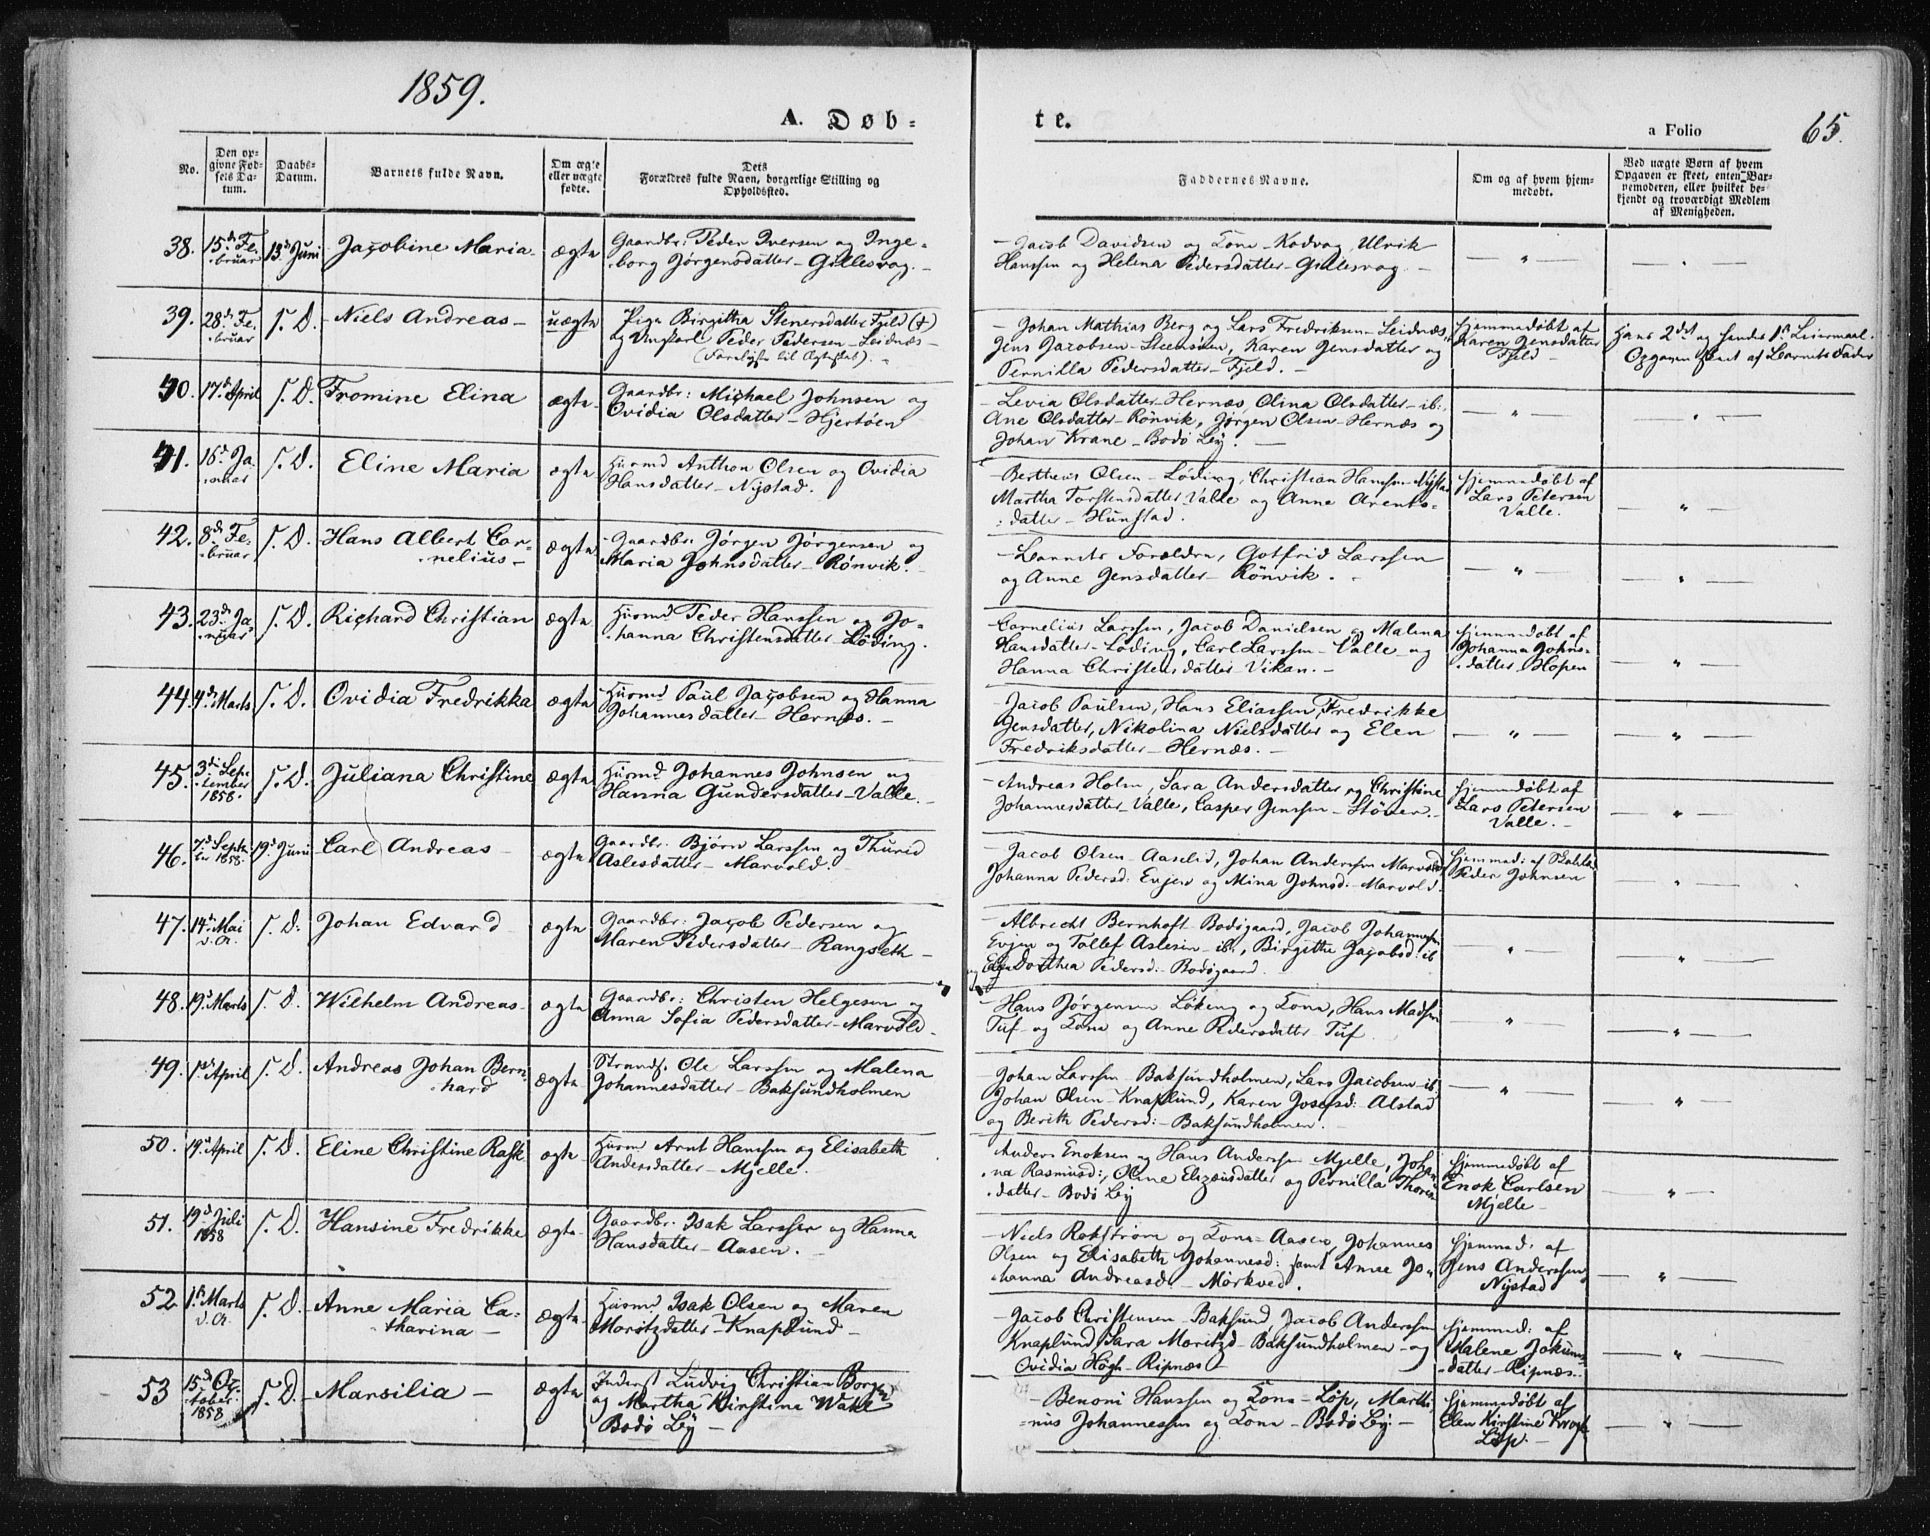 1859.
A. Døb-
te.
a Folio
65.
No.
Den op-
givne Fød-
sels Da-
tum.
Daabs-
Datum.
Barnets fulde Navn.
Om ægte
eller uægte
fødte.
Dets
Forældres fulde Navn, borgerlige Stilling og
Opholdssted.
Faddernes Navne.
Om og af hvem hjem-
medøbt.
Ved uægte Børn af hvem
Opgaven er skeet, enten Bar-
nemoderen, eller hvilket be-
kjendt og troværdigt Medlem
af Menigheden.
38. 15de Fe-
bruar
13de Juni
Jacobine Maria
ægte
Gaardbr: Peder Iversen og Inge-
borg Jørgensdatter - Gillesvag.
Jacob Davidsen og Kone - Kodvag, Ulrik
Hanssen og Helena Pedersdatter - Gillesvag.
— " —
39. 28de Fe-
bruar
s. D.
Niels Andreas
uægte
Pige Birgitha Stenersdatter Fjeld (†)
og Ungkarl Peder Pedersen - Leidnes -
(Forløfte til Ægteskab).
Johan Mathias Berg og Lars Fredriksen - Leidnæs,
Jens Jacobsen - Steensøen, Karen Jensdatter og
Pernilla Pedersdatter - Fjeld.
Hjemmedøbt af
Karen Jensdatter
Fjeld
Hans 2det og hendes 1ste Leiermaal.
Opgaven skeet af Barnets Fader
40. 17de April
s. D.
Fromine Elina
ægte
Gaardbr: Michael Johnsen og
Ovidia Olsdatter - Hjertøen
Levia Olsdatter - Hernæs, Olina Olsdatter - ib:,
Ane Olsdatter - Rönvik, Jørgen Olsen - Hernæs og
Johan Krane - Bodö Bÿ.
— " —
41. 16de Ja-
nuar
s. D.
Eline Maria
ægte
Huusmd Anthon Olsen og Ovidia
Hansdatter - Nystad.
Bertheus Olsen - Löding, Christian Hanssen - Nystad
Martha Torstensdatter Valle og Anne Arents-
datter - Hunstad.
Hjemmedøbt af
Lars Petersen
Valle.
— " —
42. 8de Fe-
bruar
s. D.
Hans Albert Cor-
nelius
ægte
Gaardbr: Jörgen Jörgensen og
Maria Johnsdatter - Rönvik.
Barnets Forældre, Gotfrid Larssen
og Anne Jensdatter - Rönvik.
— " —
43. 23de Ja-
nuar
s. D.
Richard Christian
ægte
Huusmd Peder Hanssen og Jo-
hanna Christensdatter - Löding.
Cornelius Larssen, Jacob Danielsen og Malena
Hansdatter - Löding, Carl Larssen - Valle og
Hanna Christensdatter Vikan.
Hjemmedøbt af
Johanna Johns-
datter Hopen
— " —
44. 4de Marts
s. D.
Ovidia Fredrikka
ægte
Huusmd Paul Jacobsen og Hanna
Johannesdatter - Hernæs.
Jacob Paulsen, Hans Eliassen, Fredrikke
Jensdatter, Nikolina Nielsdatter og Elen
Fredriksdatter - Hernæs.
— " —
45. 3die Sep-
tember
1858.
s. D.
Juliana Christine
ægte
Huusmd Johannes Johnsen og
Hanna Gundersdatter - Valle.
Andreas Holm, Sara Andersdatter og Christine
Johannesdatter - Valle, Casper Jenssen - Stöver.
Hjemmedøbt af
Lars Petersen
Valle.
— " —
46. 7de Septb-
br 1858.
19de Juni
Carl Andreas
ægte
Gaardbr: Bjørn Larssen og Thurid
Aslesdatter - Marvold.
Jacob Olsen - Aaselid, Johan Anderssen Marvold
Johanna Pedersd: Evjen og Mina Johnsd: Marvold.
Hjemmed: af
Peder Johnsen
— " —
47. 14de Mai
v. A.
s. D.
Johan Edvard
ægte
Gaardbr: Jacob Pedersen og
Maren Pedersdatter - Rangseth
Albrecht Bernhoft Bodøgaard, Jacob Johannessen
Evjen og Tollef Aslesen - ib:, Birgithe Jacobsd: ib
og Dorthea Pedersd: Bodøgaard.
— " —
48. 19de Marts
s. D.
Wilhelm Andreas
ægte
Gaardbr: Christen Helgesen og
Anna Sofia Pedersdatter - Marvold.
Hans Jørgensen Löking og Kone, Hans Madsen
Tuf og Kone og Anne Pedersdatter Tuf.
— " —
49. 1ste April
s. D.
Andreas Johan Bern-
hard
ægte
Strands. Ole Larssen og Malena
Johannesdatter - Baksundholmen
Johan Larssen - Baksundholmen, Lars Jacobsen - ib
Johan Olsen - Knaplund, Karen Josefsd: Alstad
og Berith Pedersd: - Baksundholmen.
— " —
50. 19de April
s. D.
Eline Christine Rask
ægte
Huusmd Arnt Hanssen og Elisabeth
Andersdatter - Mjelle.
Anders Enoksen og Hans Anderssen Mjelle, Johan-
na Rasmusd:, Oline Elizeusdatter og Pernilla Thores-
datter - Bodö Bÿ
Hjemmedøbt af
Enok Carlsen
Mjelle
— " —
51. 19de Juli
1858
s. D.
Hansine Fredrikke
ægte
Gaardbr: Isak Larssen og Hanna
Hansdatter - Aasen.
Niels Rokström og Kone - Aasen, Johannes
Olsen og Elisabeth Johannesd: samt Anne Jo-
hanna Andreasd: Mörkved.
Hjemmed: af
Jens Anderssen
Nystad
— " —
52. 1ste Marts
v. A.
s. D.
Anne Maria Ca-
tharina
ægte
Huusmd Isak Olsen og Maren
Moritzdatter - Knaplund
Jacob Christensen - Baksund, Jacob Anderssen
Knaplund, Sara Moritzd - Baksundholmen og
Ovidia Høgh - Ripnæs
Hjemmed: af
Malene Jokums-
datter - Ripnæs.
— " —
53 15de Oc-
tober
1858
s. D.
Marsilia
ægte
Inderst Ludvig Christian Borgen
og Martha Kirstina Wake
Bodö Bÿ
Benoni Hanssen og Kone - Löp, Marthi-
nus Johannessen og Kone - Bodö Bÿ
Hjemmedøbt af
Elen Kirstine Krogh
Löp.
— " —